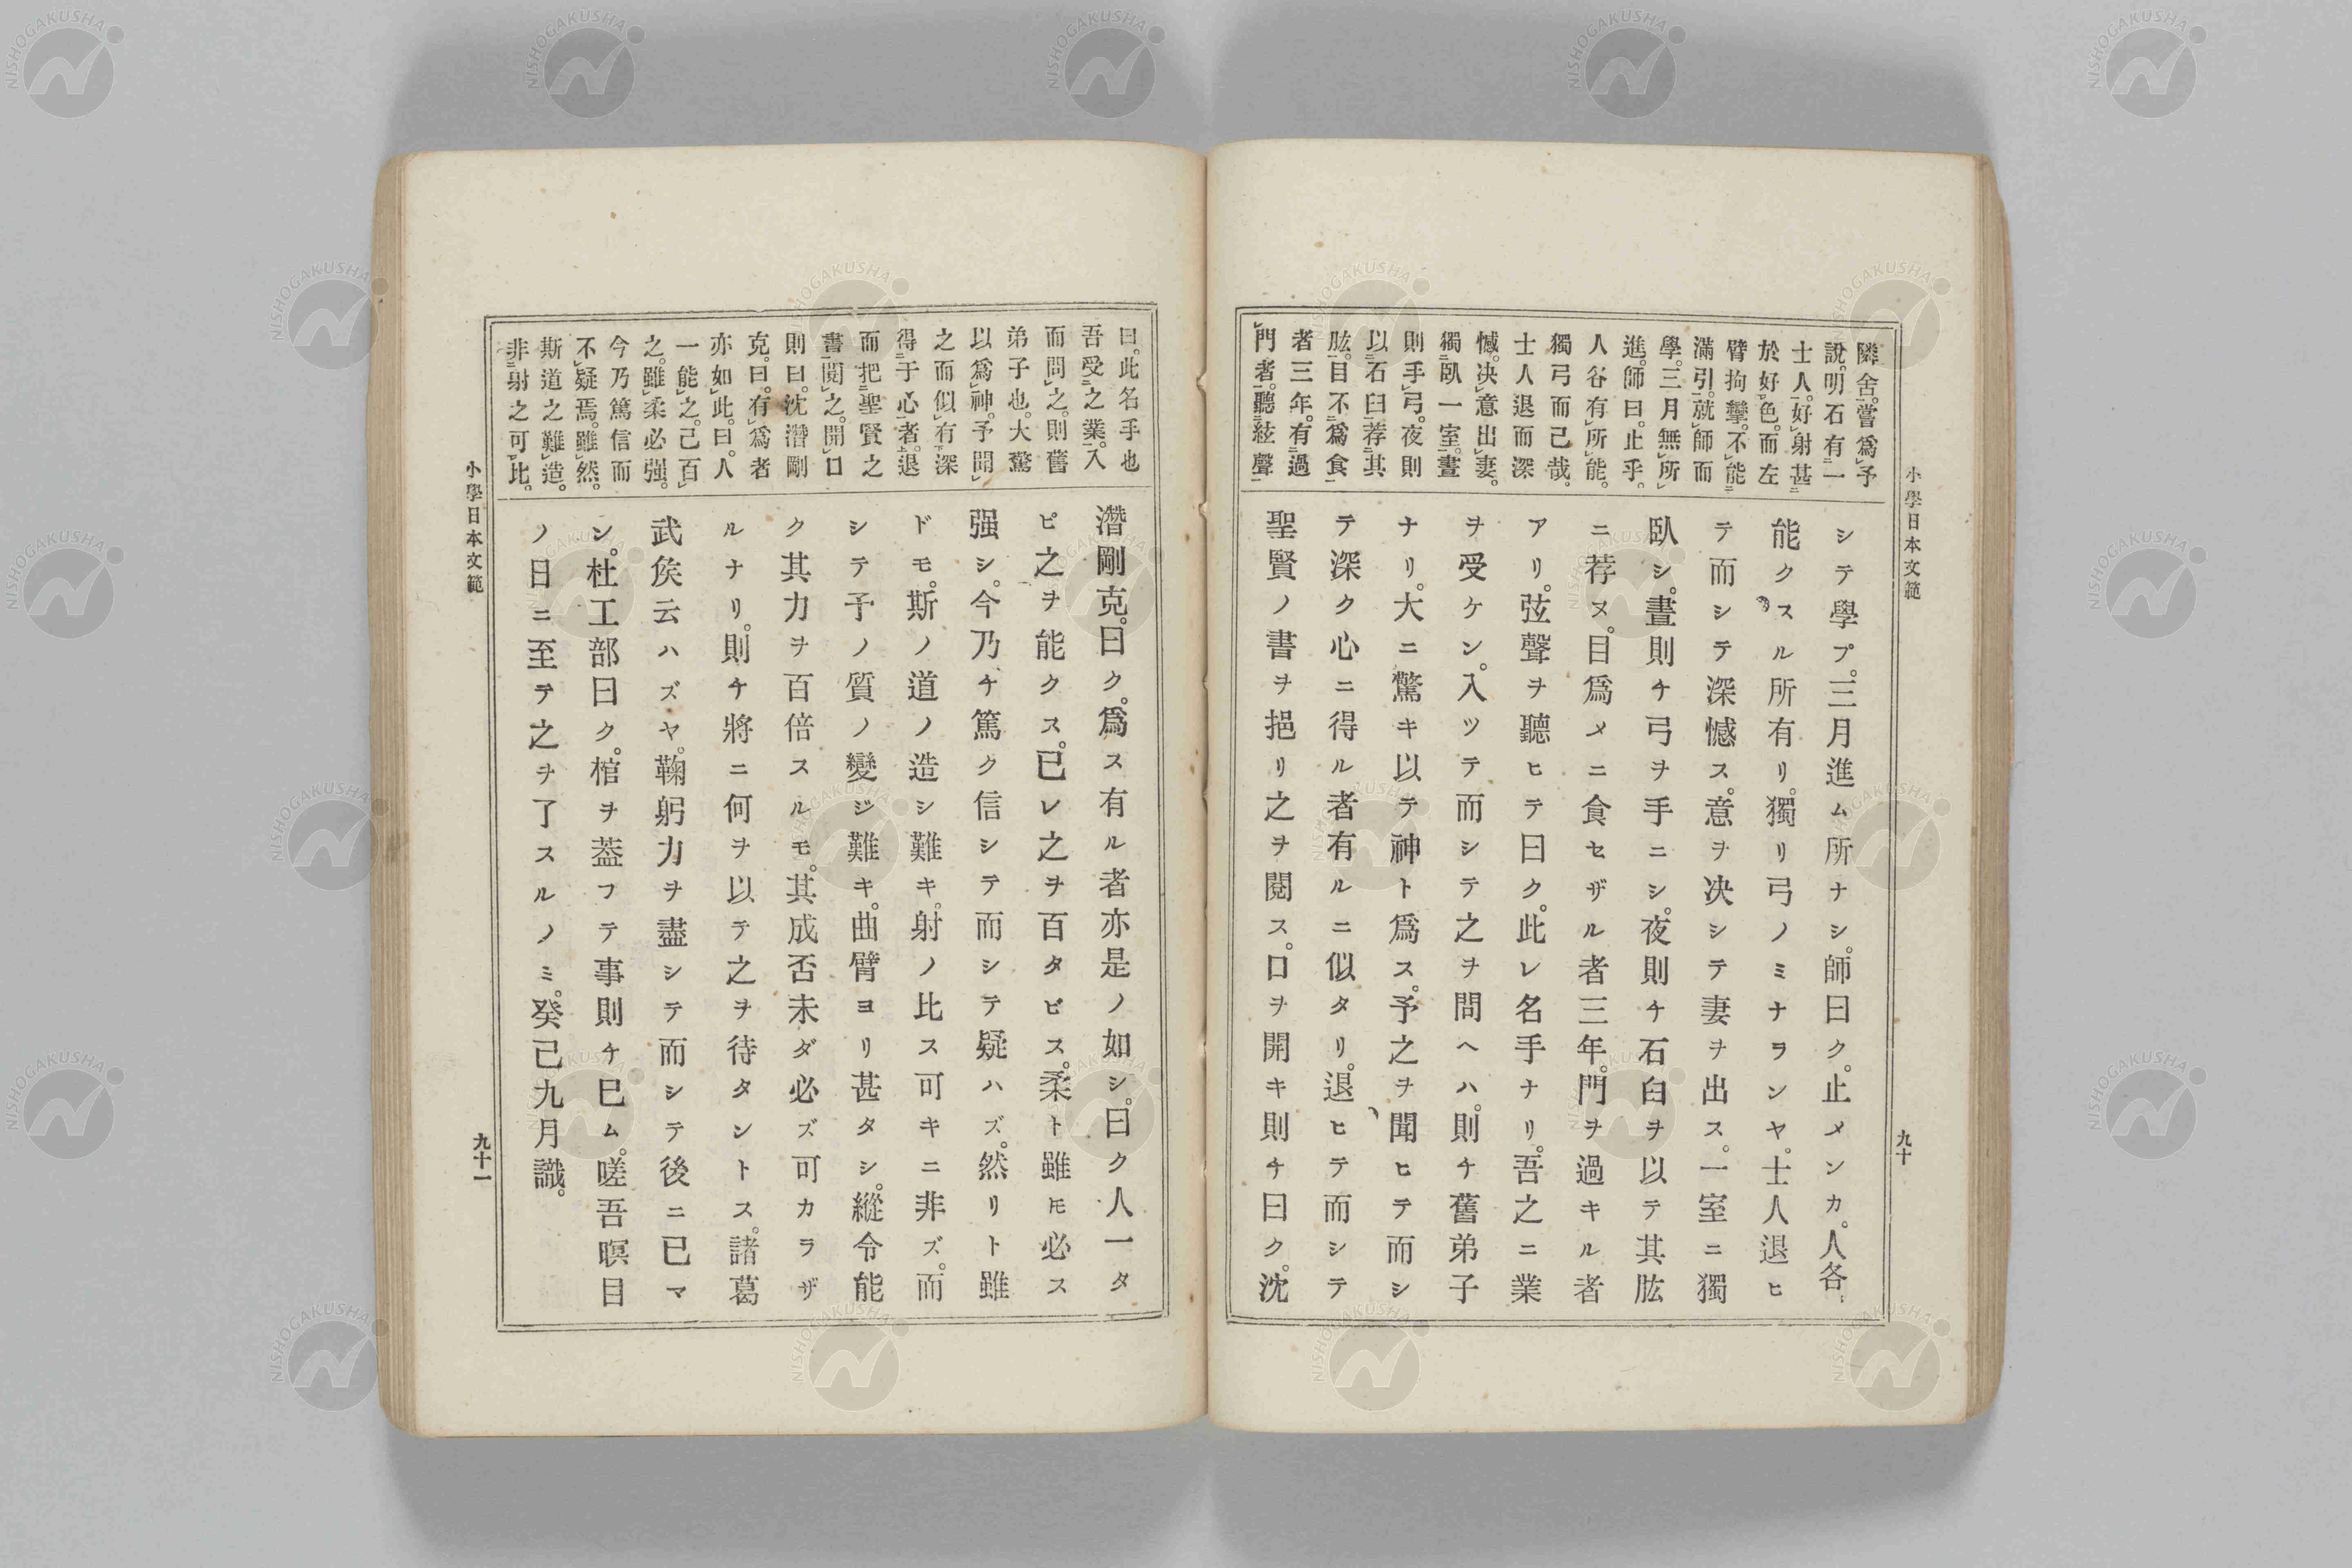 小學日本文範
隣舍。嘗爲予
說。明石有一
士人。好射甚
於好色。而左
臂拘攣。不能
滿引。就師而
學。三月無所
進。師曰。止乎。
人各有所能。
獨弓而已哉。
士人退而深
憾。决意出妻。
獨臥一室。晝
則手弓。夜則
以石臼荐其
肱。目不爲食
者三年。有過
門者。聽絃聲
シテ學プ。三月進ム所ナシ。師曰ク。止メンカ。人各〻
能クスル所有リ。獨リ弓ノミナランヤ。士人退ヒ
テ而シテ深憾ス。意ヲ决シテ妻ヲ出ス。一室ニ獨
臥シ。晝則チ弓ヲ手ニシ。夜則チ石臼ヲ以テ其肱
ニ荐ヌ。目爲メニ食セザル者三年。門ヲ過キル者
アリ。弦聲ヲ聽ヒテ曰ク。此レ名手ナリ。吾之ニ業
ヲ受ケン。入ツテ而シテ之ヲ問ヘハ。則チ舊弟子
ナリ。大ニ驚キ以テ神ト爲ス。予之ヲ聞ヒテ而シ
テ深ク心ニ得ル者有ルニ似タリ。退ヒテ而シテ
聖賢ノ書ヲ挹リ之ヲ閱ス。口ヲ開キ則チ曰ク。沈
九十
曰。此名手也
吾受之業。入
而問之。則舊
弟子也。大驚
以爲神。予聞
之而似有深
得于心者。退
而把聖賢之
書閱之。開口
則曰。沈潛剛
克。曰。有爲者
亦如此。曰。人
一能之。己百
之。雖柔必强。
今乃篤信而
不疑焉。雖然。
斯道之難造。
非射之可比。
潛剛克。曰ク。爲ス有ル者亦是ノ如シ。曰ク人一タ
ピ之ヲ能クス。已レ之ヲ百タビス。柔ト雖𪜈必ス
强シ。今乃チ篤ク信シテ而シテ疑ハズ。然リト雖
ドモ。斯ノ道ノ造シ難キ。射ノ比ス可キニ非ズ。而
シテ予ノ質ノ變ジ難キ。曲臂ヨリ甚タシ。縱令能
ク其力ヲ百倍スルモ。其成否未ダ必ズ可カラザ
ルナリ。則チ將ニ何ヲ以テ之ヲ待タントス。諸葛
武矦云ハズヤ。鞠躬力ヲ盡シテ而シテ後ニ已マ
ン。杜工部曰ク。棺ヲ葢フテ事則チ巳ム。嗟吾暝目
ノ日ニ至テ之ヲ了スルノミ。癸己九月識。
小學日本文範
九十一